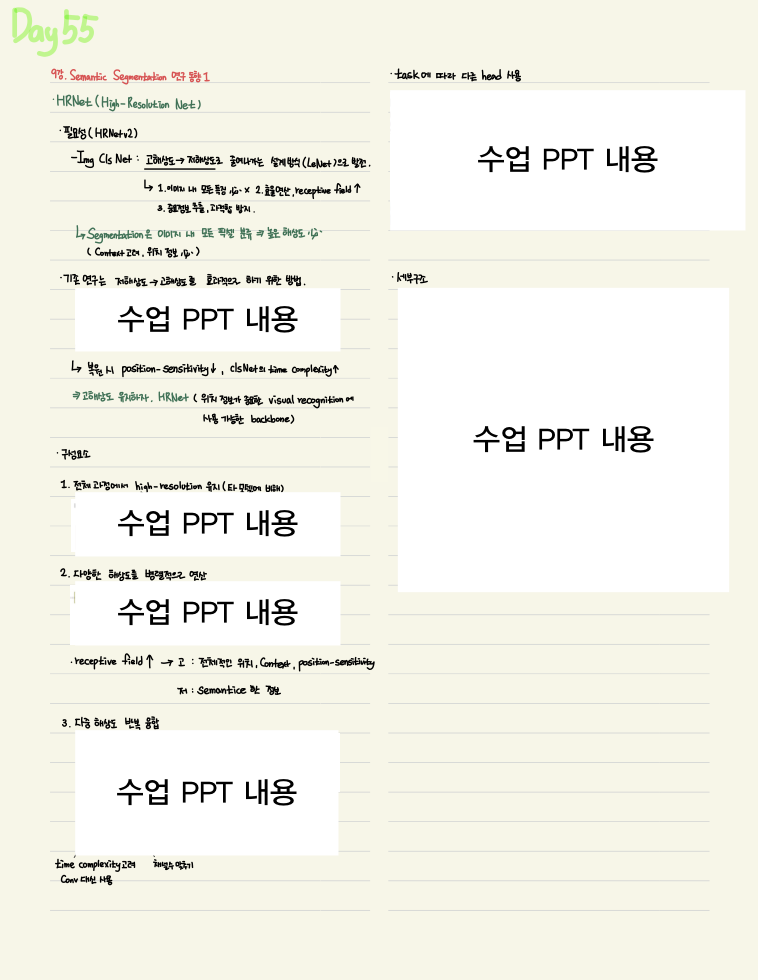 Day 55
9강. Semantic Segmentation 연구 동향 1
· HRNet (High-Resolution Net)
· 필요성 (HRNetv2)
- Img Cls Net : 고해상도 → 저해상도로 줄여나가는 설계방식 (LeNet)으로 발전.
↳ 1. 이미지 내 모든 특징 必 x 2. 효율연산, receptive field ↑
3. 중요정보 추출, 과적합 방지.
↳ Segmentation은 이미지 내 모든 픽셀 분류 ⇒ 높은 해상도 必
( Context 고려, 위치 정보 必 )
· 기존 연구는 저해상도 → 고해상도를 효과적으로 하기 위한 방법.
수업 PPT 내용
↳ 복원 시 position-sensitivity ↓, ClsNet의 time complexity ↑
⇒ 고해상도 유지하자. HRNet ( 위치 정보가 중요한 visual recognition에
사용 가능한 backbone)
· 구성요소
1. 전체 과정에서 high-resolution 유지 (타 모델에 비해)
수업 PPT 내용
2. 다양한 해상도를 병렬적으로 연산
수업 PPT 내용
· receptive field ↑ → 고 : 전체적인 위치, Context, position-sensitivity
저 : Semantice 한 정보
3. 다중 해상도 반복 융합
수업 PPT 내용
time complexity 고려 채널수 맞추기
Conv 대신 사용
· task에 따라 다른 head 사용
수업 PPT 내용
· 세부구조
수업 PPT 내용